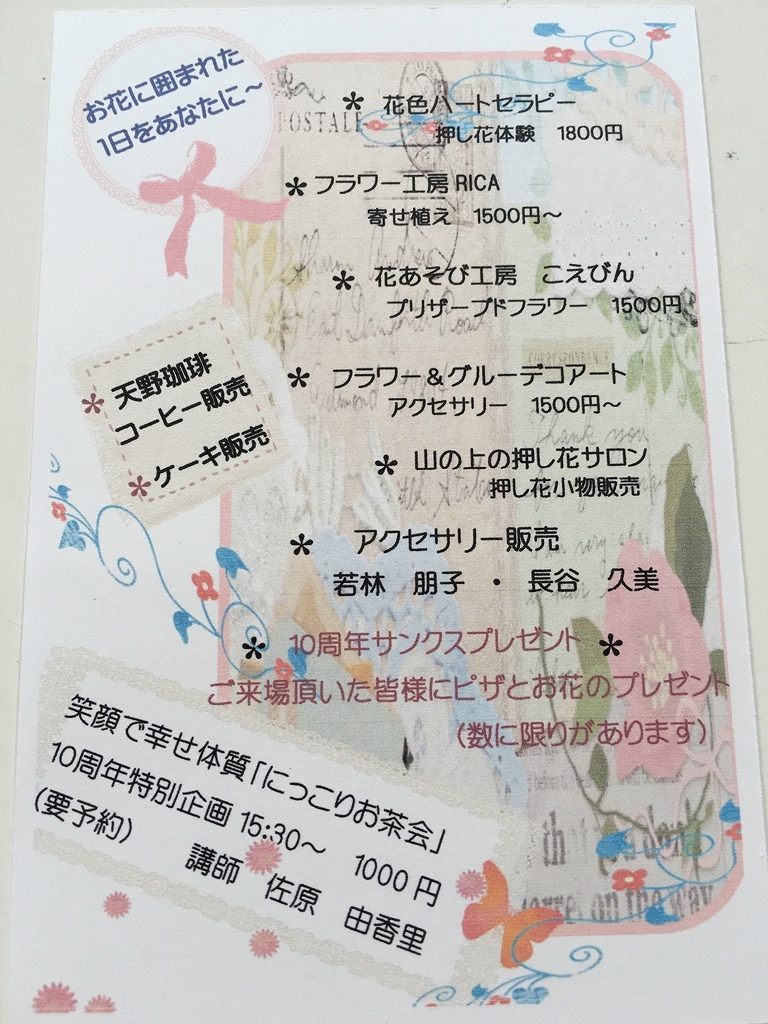 お花に囲まれた
1日をあなたに～
POSTALE
* 花色ハートセラピー
押し花体験 1800円
* フラワー工房 RICA
寄せ植え 1500円～
* 花あそび工房 こえびん
プリザーブドフラワー 1500円
* フラワー＆グルーデコアート
アクセサリー 1500円～
* 山の上の押し花サロン
押し花小物販売
* アクセサリー販売
若林 朋子 ・ 長谷 久美
* 天野珈琲
コーヒー販売
* ケーキ販売
* 10周年サンクスプレゼント *
ご来場頂いた皆様にピザとお花のプレゼント
（数に限りがあります）
笑顔で幸せ体質「にっこりお茶会」
10周年特別企画 15:30～ 1000円
（要予約） 講師 佐原 由香里
Thank you
that you don't
on the way